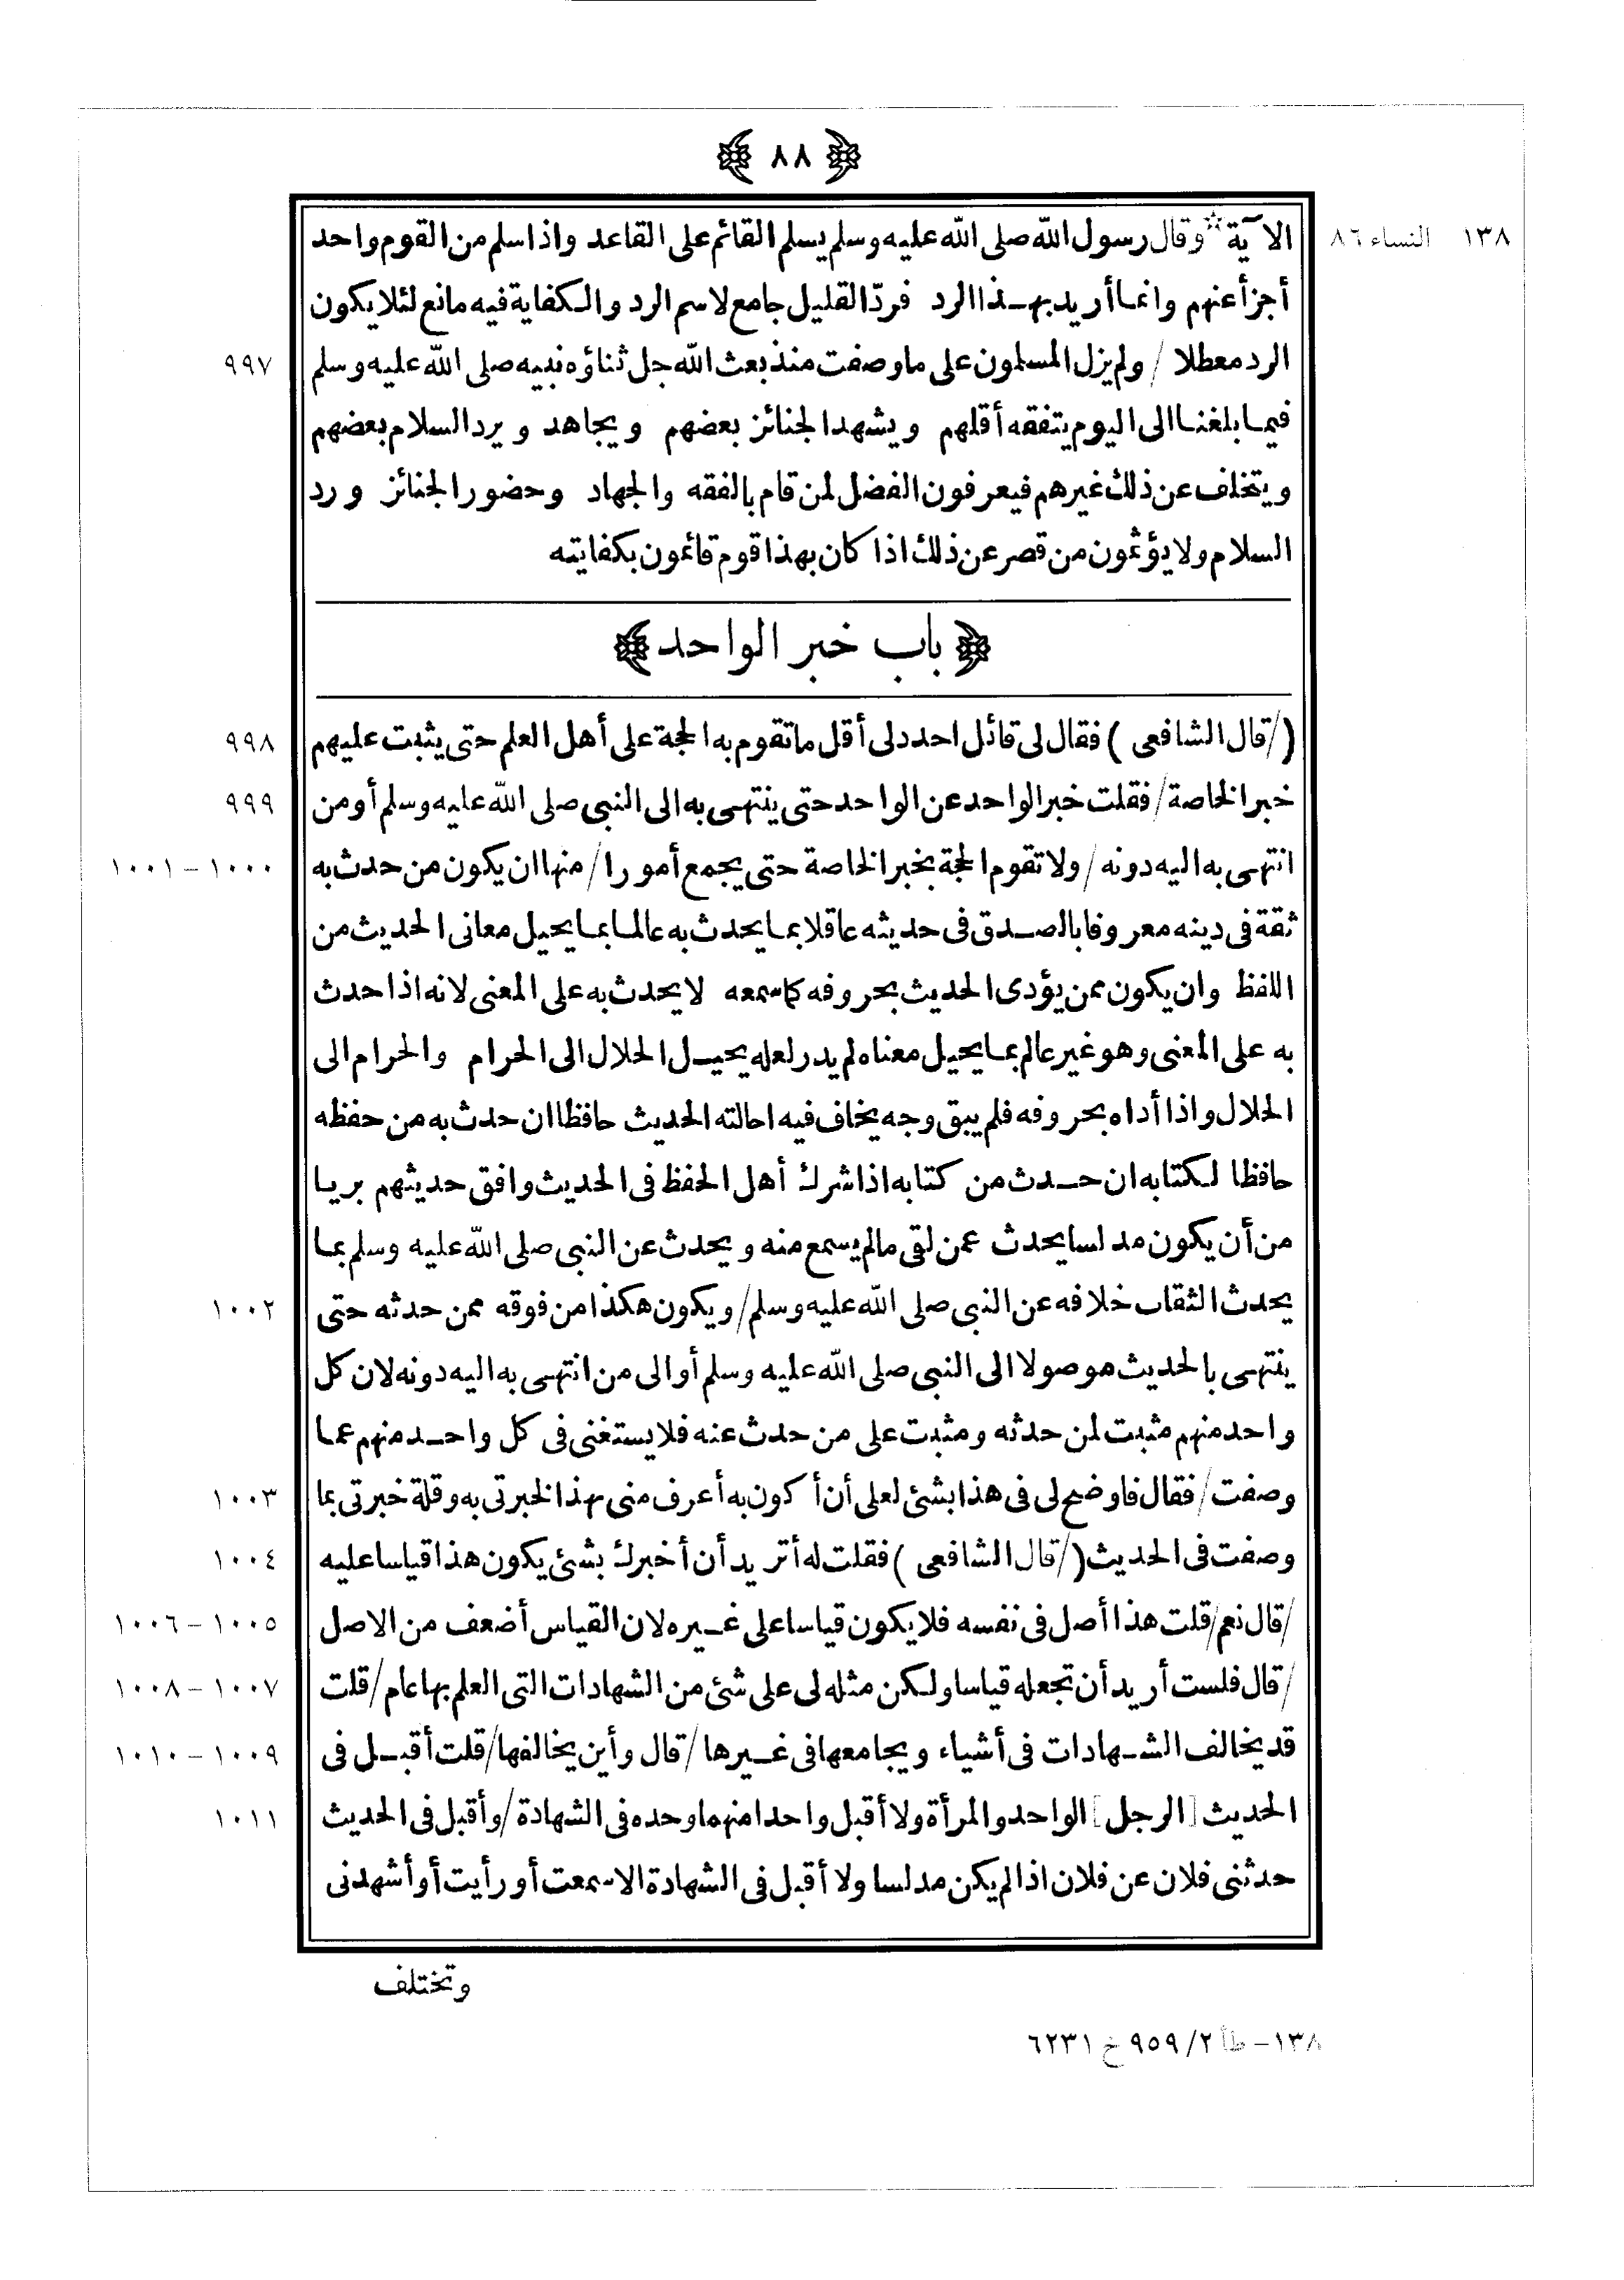 ﴿ ٨٨ ﴾
١٣٨ النساء ٨٦
الآية * وقال رسول الله صلى الله عليه وسلم يسلم القائم على القاعد واذا سلم من القوم واحد
أجزأ عنهم وانما أريد بهذا الرد فردّ القليل جامع لاسم الرد والكفاية فيه مانع لئلا يكون
الرد معطلا / ولم يزل المسلمون على ما وصفت منذ بعث الله جل ثناؤه نبيه صلى الله عليه وسلم ٩٩٧
فيما بلغنا الى اليوم يتفقه أقلهم ويشهد الجنائز بعضهم ويجاهد ويرد السلام بعضهم
ويتخلف عن ذلك غيرهم فيعرفون الفضل لمن قام بالفقه والجهاد وحضور الجنائز ورد
السلام ولا يؤثمون من قصر عن ذلك اذا كان بهذا قوم قائمون بكفايته
﴿ باب خبر الواحد ﴾
(/ قال الشافعى ) فقال لى قائل احدد لى أقل ما تقوم به الحجة على أهل العلم حتى يثبت عليهم ٩٩٨
خبر الخاصة / فقلت خبر الواحد عن الواحد حتى ينتهى به الى النبى صلى الله عليه وسلم أو من ٩٩٩
انتهى به اليه دونه / ولا تقوم الحجة بخبر الخاصة حتى يجمع أمورا / منها ان يكون من حدث به ١٠٠٠ - ١٠٠١
ثقة فى دينه معروفا بالصدق فى حديثه عاقلا بما يحدث به عالما بما يحيل معانى الحديث من
اللفظ وان يكون ممن يؤدى الحديث بحروفه كما سمعه لا يحدث به على المعنى لانه اذا حدث
به على المعنى وهو غير عالم بما يحيل معناه لم يدر لعله يحيل الحلال الى الحرام والحرام الى
الحلال واذا أداه بحروفه فلم يبق وجه يخاف فيه احالته الحديث حافظا ان حدث به من حفظه
حافظا لكتابه ان حدث من كتابه اذا شرك أهل الحفظ فى الحديث وافق حديثهم بريا
من أن يكون مدلسا يحدث عمن لقى ما لم يسمع منه ويحدث عن النبى صلى الله عليه وسلم بما
يحدث الثقات خلافه عن النبى صلى الله عليه وسلم / ويكون هكذا من فوقه ممن حدثه حتى ١٠٠٢
ينتهى بالحديث موصولا الى النبى صلى الله عليه وسلم أو الى من انتهى به اليه دونه لان كل
واحد منهم مثبت لمن حدثه ومثبت على من حدث عنه فلا يستغنى فى كل واحد منهم عما
وصفت / فقال فاوضح لى فى هذا بشئ لعلى أن أكون به أعرف منى بهذا الخبرتى به وقلة خبرتى بما ١٠٠٣
وصفت فى الحديث (/ قال الشافعى ) فقلت له أتريد أن أخبرك بشئ يكون هذا قياسا عليه ١٠٠٤
/ قال نعم / قلت هذا أصل فى نفسه فلا يكون قياسا على غيره لان القياس أضعف من الاصل ١٠٠٥ - ١٠٠٦
/ قال فلست أريد أن تجعله قياسا ولكن مثله لى على شئ من الشهادات التى العلم بها عام / قلت ١٠٠٧ - ١٠٠٨
قد يخالف الشهادات فى أشياء ويجامعها فى غيرها / قال وأين يخالفها / قلت أقبل فى ١٠٠٩ - ١٠١٠
الحديث [الرجل] الواحد والمرأة ولا أقبل واحدا منهما وحده فى الشهادة / وأقبل فى الحديث ١٠١١
حدثنى فلان عن فلان اذا لم يكن مدلسا ولا أقبل فى الشهادة الا سمعت أو رأيت أو أشهدنى
وتختلف
١٣٨ - طأ ٢/ ٩٥٩ خ ٦٢٣١